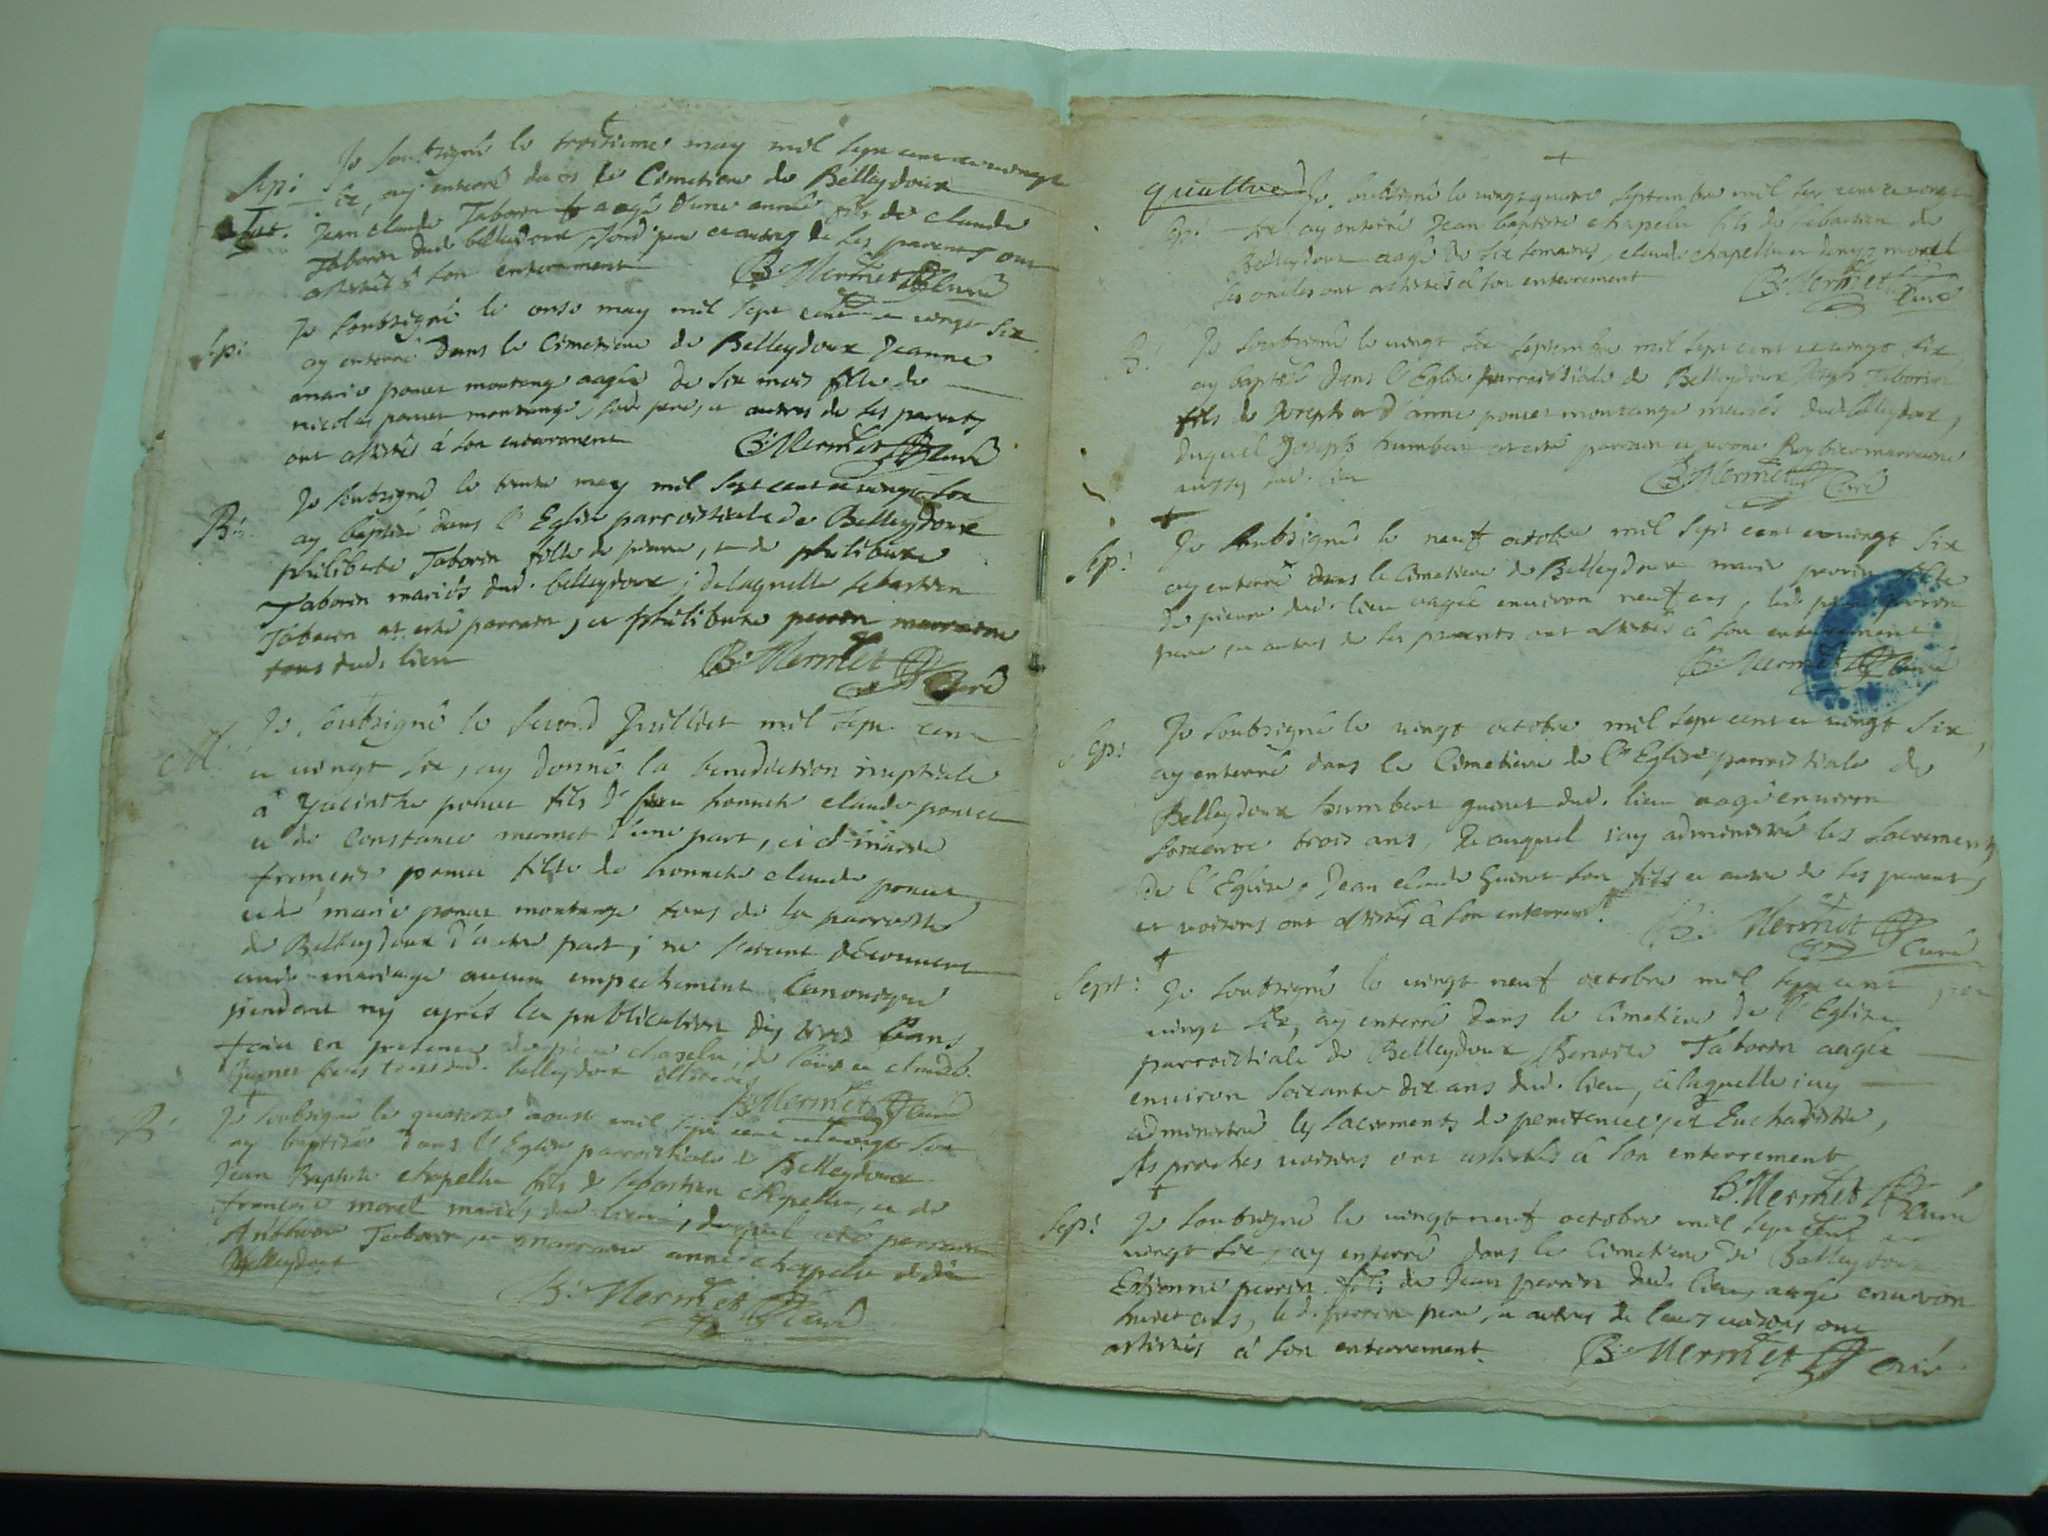 Je soubsigné le troisieme may mil sept cent et vingt
Sep: six, ay enterré dans le Cimetiere de Belleydoux
Jean claude Taborin aagé d'une année fils de claude
Taborin dud. belleydoux, sond. pere et autres de ses parents ont
assistés à son enterrement B: Mermet Curé
Je soubsigné le onze may mil sept cent et vingt six
Sep: ay enterré dans le Cimetiere de Belleydoux Jeanne
marie poncet montange aagée de six mois fille de
nicolas poncet montange, sond. pere, et autres de ses parents
ont assistés à son enterrement B: Mermet Curé
Je soubsigné le trente may mil sept cent et vingt six
B: ay baptisé dans l'Eglise parroissiale de Belleydoux
philiberte Taborin fille de pierre, et de philiberte
Taborin mariés dud. belleydoux; de laquelle sebastien
Taborin at esté parrain, et philiberte perrin marraine
tous dud. lieu B: Mermet Curé
M. Je soubsigné le second Juilliet mil sept cent
et vingt six, ay donné la benediction nuptiale
à Yacinthe poncet fils d' feu honneste claude poncet
et de Constance mermet d'une part, et à
françoise poncet fille de honneste claude poncet
et de marie poncet montange tous de la parroisse
de Belleydoux d'autre part; ne s'etant découvert
aud. mariage aucun empechement Canonique
pendant ny aprés la publication des trois bans,
faict en presence de pierre chapelu, de et claude
guinet tous dud. belleydoux illiterés
B: Mermet Curé
B: Je soubsigné le quatorze aoust mil sept cent et vingt six
ay baptisé dans l'Eglise parroissiale de Belleydoux
Jean Baptiste chapellu fils de sebastien chapellu, et de
françoise morel mariés dud. lieu, duquel at esté parrain
Anthoine Taborin, et marraine anne chapelu dud.
Belleydoux
B: Mermet Curé
quattre
Je soubsigné le vingt quatre septembre mil sept cent et vingt
Sep: six ay enterré Jean baptiste chapelu fils de sebastien de
Belleydoux aagé de six semaines, claude chapellu et denys morel
ses oncles ont assistés à son enterrement B: Mermet Curé
B. Je soubsigné le vingt six septembre mil sept cent et vingt six
ay baptisé dans l'Eglise parroissiale de Belleydoux Joseph Taborin
fils de Joseph et d'anne poncet montange mariés dud. belleydoux,
duquel Joseph humbert at esté parrain et marraine
aussy dud. lieu B: Mermet Curé
Sep: Je soubsigné le neuf octobre mil sept cent et vingt six
ay enterré dans le Cimetiere de Belleydoux marie perrin fille
de pierre dud. lieu aagée environ neuf ans, led. pierre perrin
pere, et autres de ses parents ont assistés à son enterrement
B: Mermet Curé
Sep: Je soubsigné le vingt octobre mil sept cent et vingt six,
ay enterré dans le Cimetiere de l'Eglise parroissiale de
Belleydoux humbert guinet dud. lieu aagé environ
soixante trois ans, auquel i'ay administré les sacrements
de l'Eglise, Jean claude Guinet son fils et autre de ses parents,
et voisins ont assistés à son enterremt. B: Mermet Curé
Sept: Je soubsigné le vingt neuf octobre mil sept cent
vingt six, ay enterré dans le Cimetiere de l'Eglise
parroissiale de Belleydoux Benoite Taborin aagée
environ soixante dix ans dud. lieu, à laquelle i'ay
administré les sacrements de penitence, et Eucharistie,
ses proches voisins ont assistés à son enterrement
B: Mermet Curé
Sep: Je soubsigné le vingt neuf octobre mil sept cent et
vingt six, ay enterré dans le Cimetiere de Belleydoux
Estienne perrin fils de Jean perrin dud. lieu, aagé environ
huict ans, led. perrin pere, et autres de leurs voisins ont
assistés à son enterrement. B: Mermet Curé